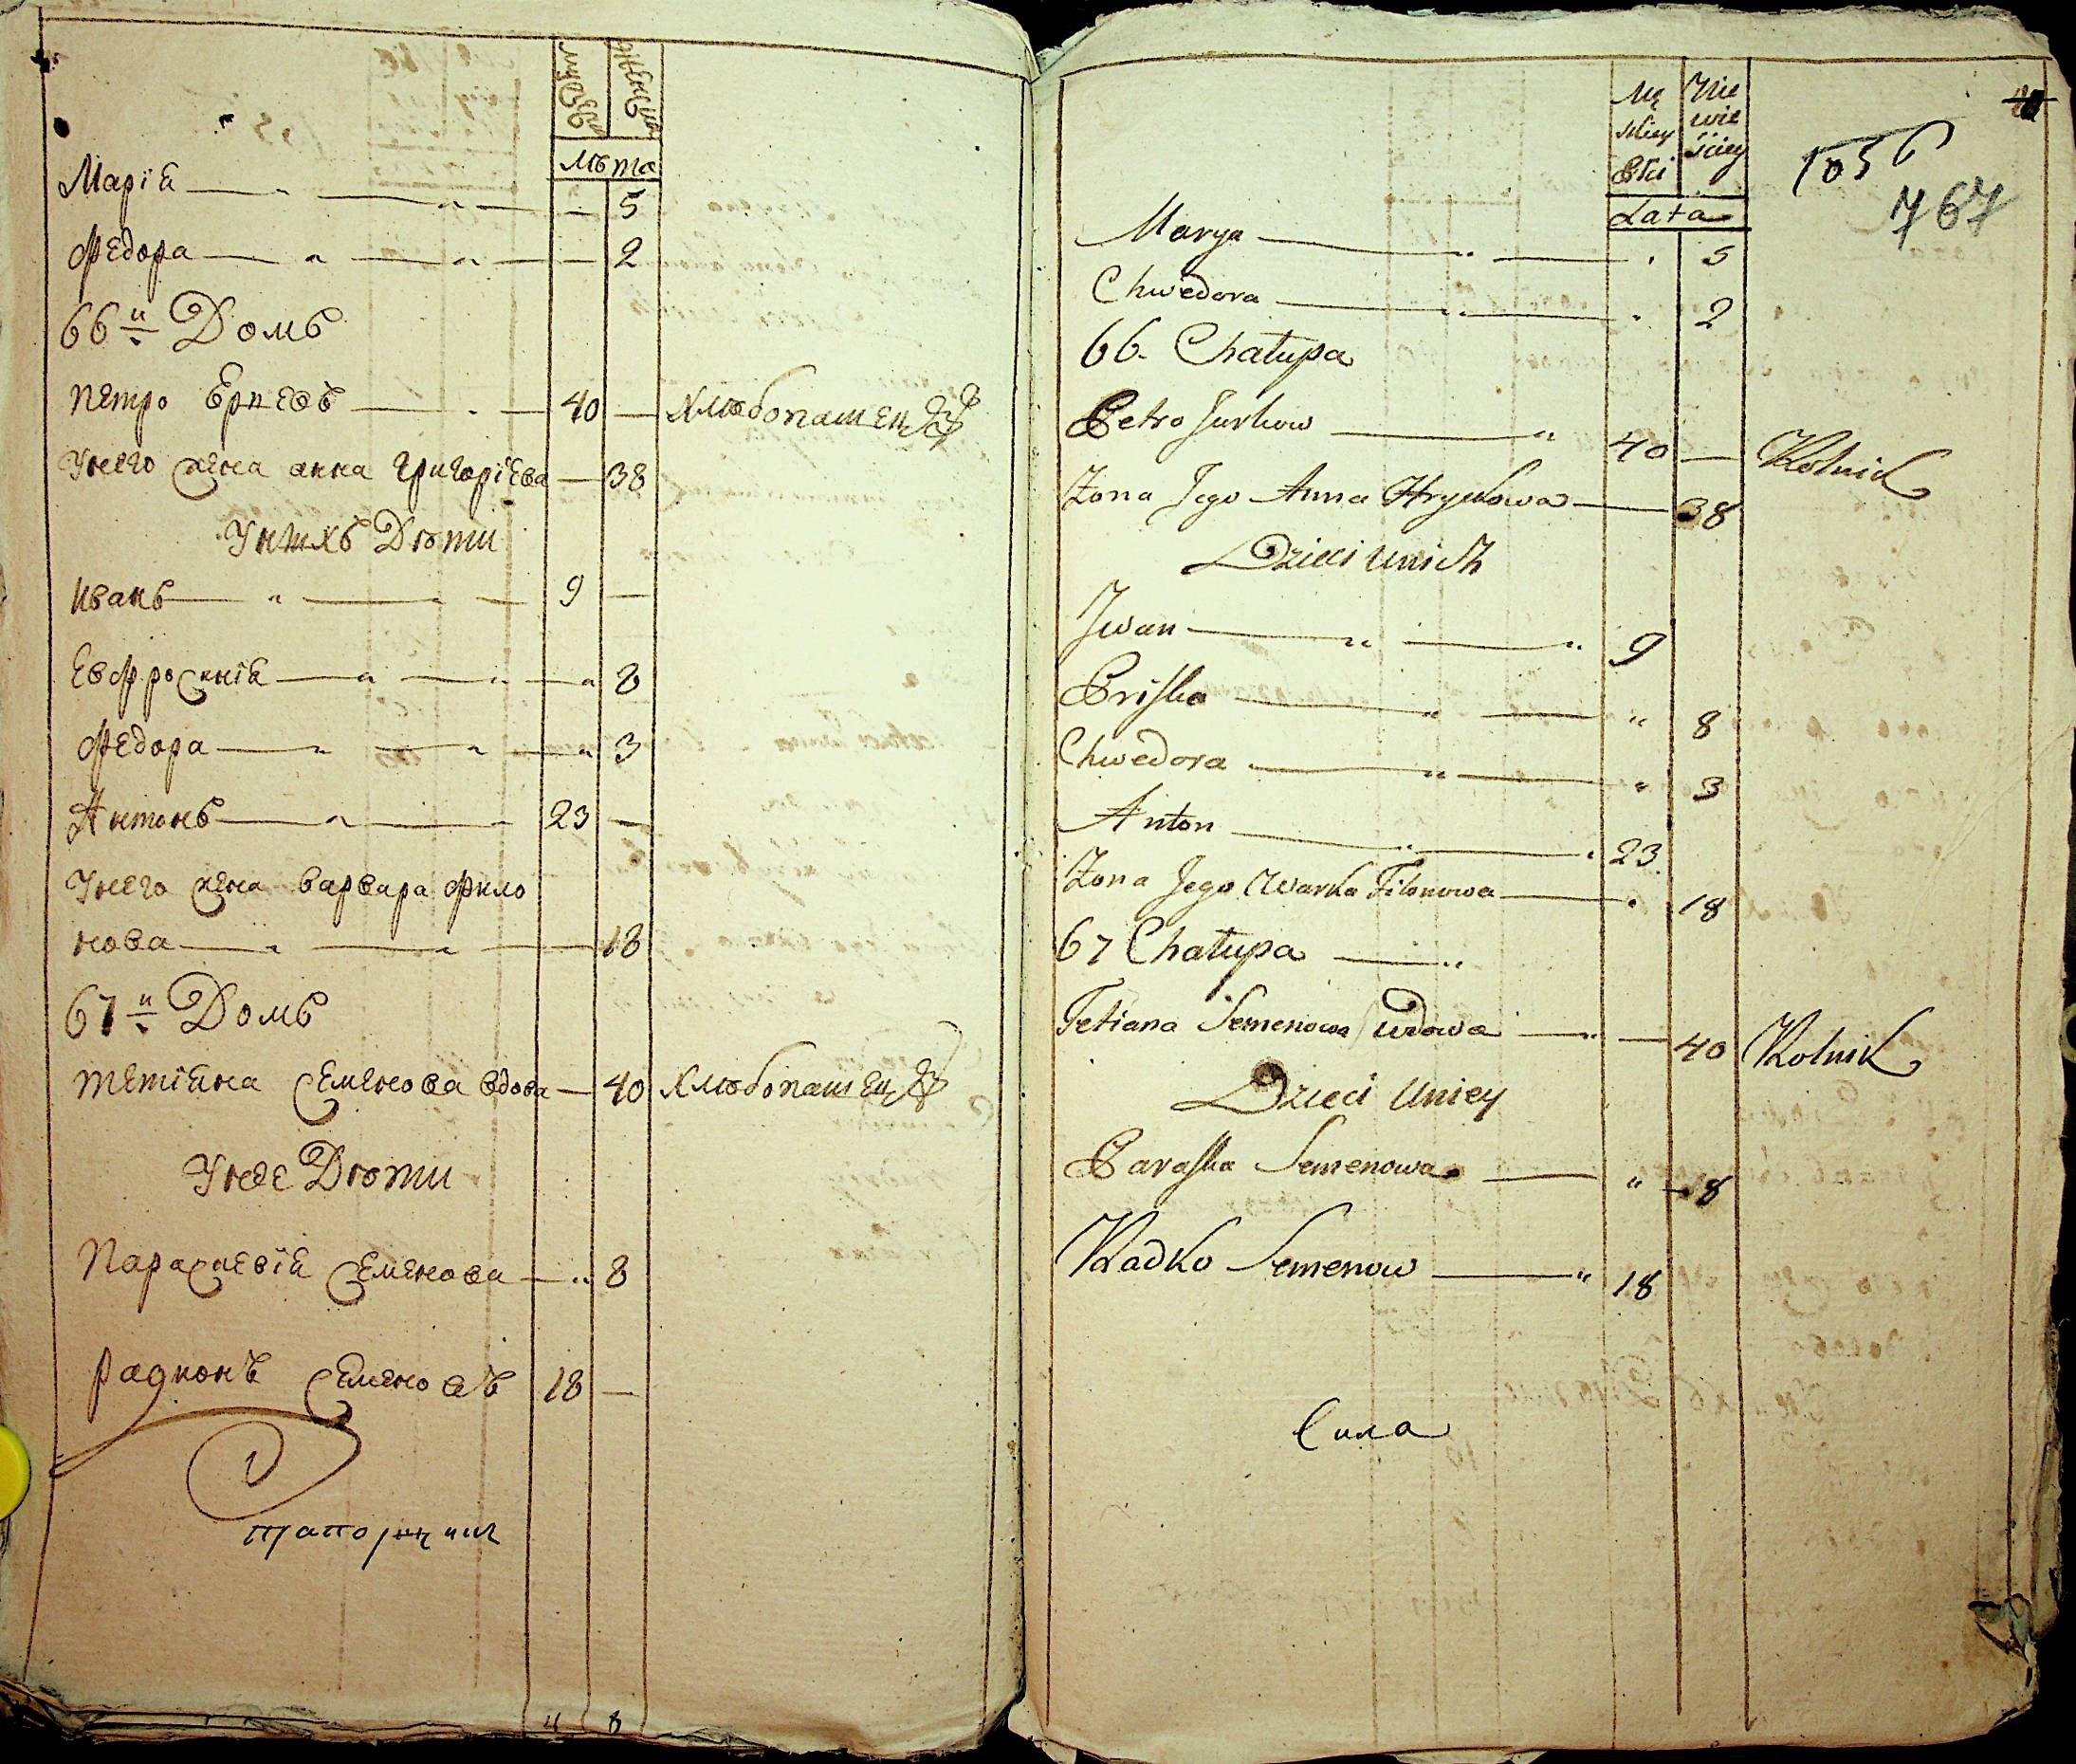 мужеска женска
лѣта
Марія 5
Федора 2
66й Домъ
Петро Юрковъ 40 — хлѣбопашецъ
У него жена анна григоріева — 38
У нихъ Дѣти
Иванъ 9 —
Евфросинія 8
Федора 3
Антонъ 23 —
У него жена варвара Фило
нова 18
67й Домъ
Тетіяна Семенова вдова — 40 хлѣбопашецъ
У нее Дѣти
Параскевія Семенова 8
Радионъ Семеновъ 18 —
4 8
Mę Nie
skiey wie
Płci sciey
Lata
1056
767
Marya 5
Chwedora 2
66. Chałupa
Petro Jurkow 40 — Rolnik
Żona Jego Anna Hryckowa 38
Dzieci u nich
Jwan 9
Priska 8
Chwedora 3
Anton 23
Żona Jego Warka Filonowa 18
67 Chałupa
Tetiana Semenowa wdowa 40 Rolnik
Dzieci u niey
Paraska Semenowa 8
Radko Semenow 18
Сила